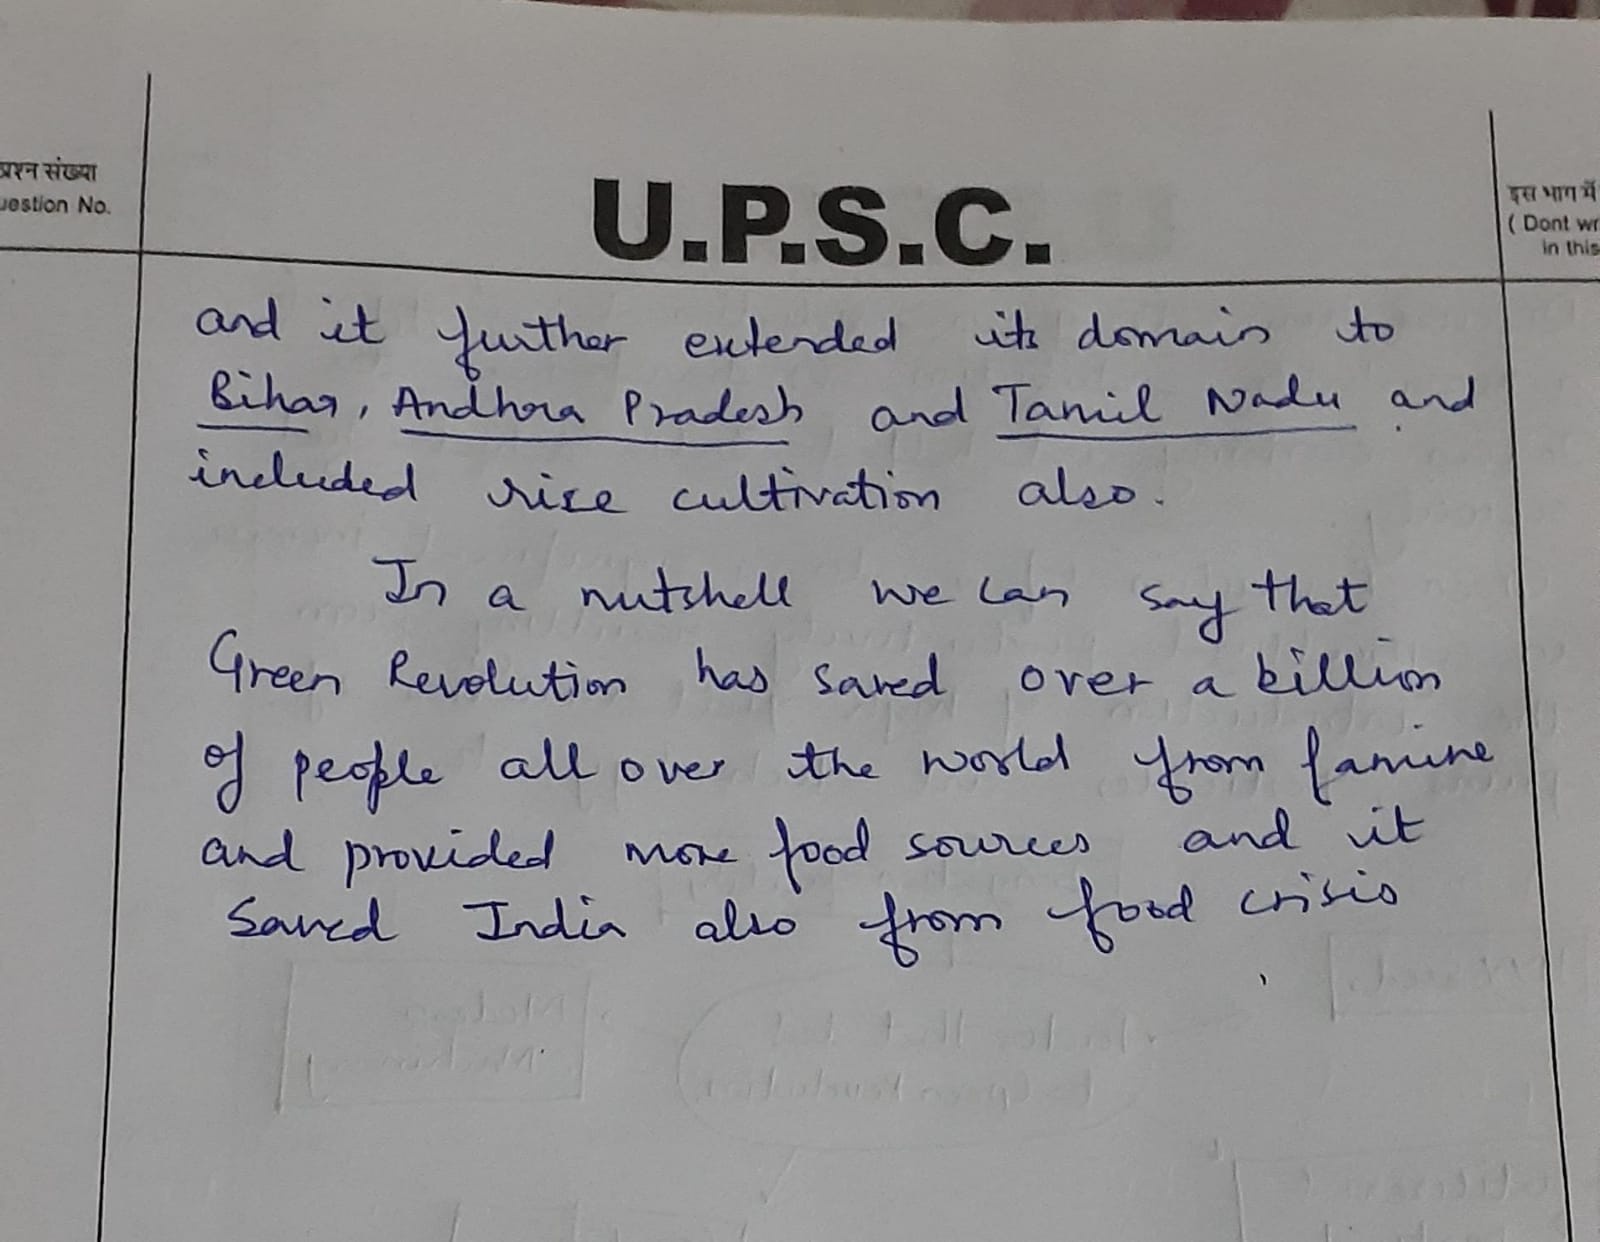 प्रश्न संख्या
uestion No.
U.P.S.C.
इस भाग में
( Dont wr
in this
and it further extended its domain to
Bihar, Andhra Pradesh and Tamil Nadu and
included rice cultivation also.
In a nutshell we can say that
Green Revolution has saved over a billion
of people all over the world from famine
and provided more food sources and it
saved India also from food crisis